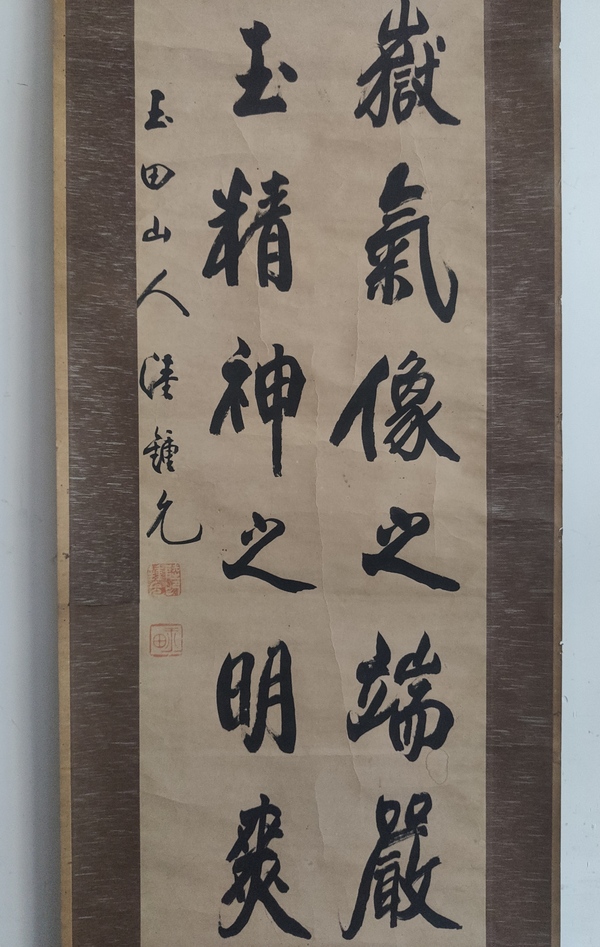 嶽氣像之端嚴
玉精神之明爽
玉田山人陸鍾允